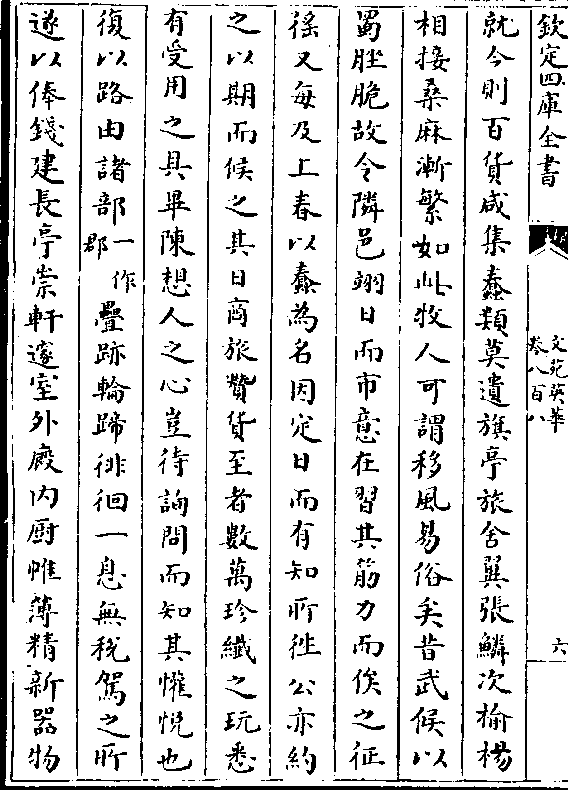 欽定四庫全書
文苑英華
卷八百八
六
就今則百貨咸集蠢類莫遺旗亭旅舍翼張鱗次榆楊
相接桑麻漸繁如此牧人可謂移風易俗矣昔武侯以
蜀脞脆故令隣邑翊日而市意在習其筋力而俟之征
徭又每及上春以蠶為名因定日而有知所徃公亦約
之以期而候之其日商旅賫貨至者數萬珍纎之玩悉
有受用之具畢陳想人之心豈待詢問而知其懽悅也
復以路由諸部一作郡疊跡輪蹄徘徊一息無稅駕之所
遂以俸錢建長亭崇軒邃室外廄内厨帷薄精新器物